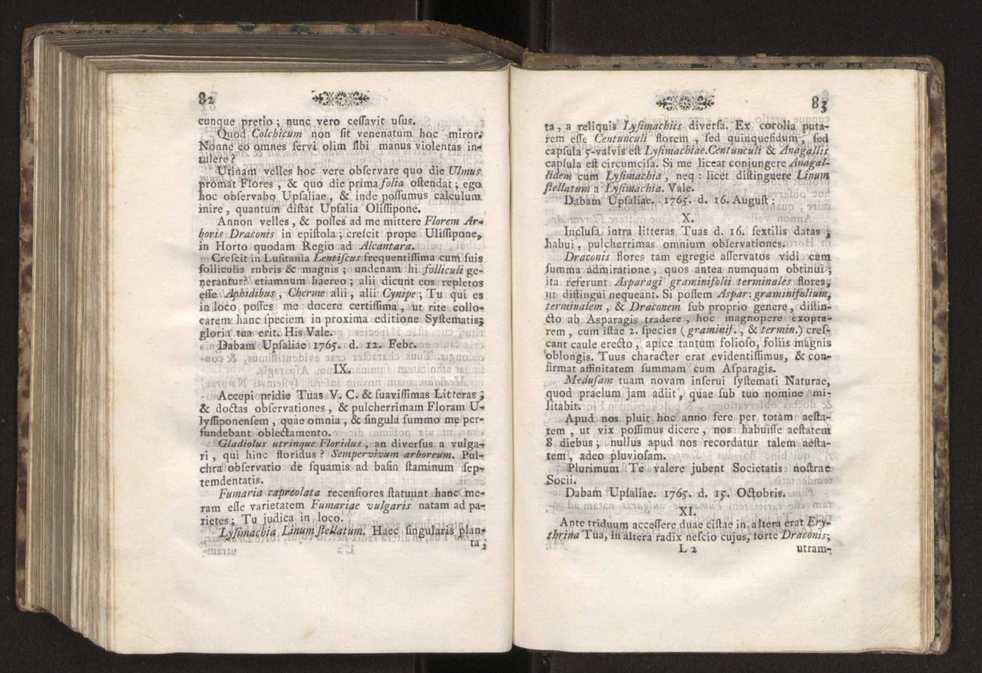 82
cunque pretio ; nunc vero cessavit usus.
Quod Colchicum non sit venenatum hoc miror.
Nonne eo omnes servi olim sibi manus violentas in-
tulere ?
Utinam velles hoc vere observare quo die Ulmus
promat Flores , & quo die prima folia ostendat ; ego
hoc observabo Upsaliae , & inde possumus calculum
inire , quantum distat Upsalia Olissipone.
Annon velles , & posses ad me mittere Florem Ar-
boris Draconis in epistola ; crescit prope Ulissipone,
in Horto quodam Regio ad Alcantara.
Crescit in Lusitania Lentiscus frequentissima cum suis
folliculis rubris & magnis ; undenam hi folliculi ge-
nerantur? etiamnum haereo ; alii dicunt eos repletos
esse Aphidibus , Cherme alii , alii Cynipe ; Tu qui es
in loco posses me docere certissima , ut rite collo-
carem hanc speciem in proxima editione Systematis;
gloria tua erit. His Vale.
Dabam Upsaliae 1765. d. 12. Febr.
IX.
Accepi pridie Tuas V. C. & suavissimas Litteras ,
& doctas observationes , & pulcherrimam Floram U-
lyssiponensem , quae omnia , & singula summo me per-
fundebant oblectamento.
Gladiolus utrinque Floridus , an diversus a vulga-
ri , qui hinc floridus ? Sempervivum arboreum. Pul-
chra observatio de squamis ad basin staminum sep-
temdentatis.
Fumaria capreolata recensiores statuunt hanc me-
ram esse varietatem Fumariae vulgaris natam ad pa-
rietes ; Tu judica in loco.
Lysimachia Linum stellatum. Haec singularis plan-
ta ,
83
ta , a reliquis Lysimachiis diversa. Ex corolla puta-
rem esse Centunculi florem , sed quinquefidum , sed
capsula 5-valvis est Lysimachiae. Centunculi & Anagallis
capsula est circumcisa. Si me liceat conjungere Anagal-
lidem cum Lysimachia , neq : licet distinguere Linum
stellatum a Lysimachia. Vale.
Dabam Upsaliae. 1765. d. 16. August :
X.
Inclusa intra litteras Tuas d. 16. sextilis datas ,
habui , pulcherrimas omnium observationes.
Draconis flores tam egregie asservatos vidi cum
summa admiratione , quos antea numquam obtinui ;
ita referunt Asparagi graminifolii terminales flores,
ut distingui nequeant. Si possem Aspar: graminifolium,
terminalem , & Draconem sub proprio genere , distin-
cto ab Asparagis tradere , hoc magnopere exopta-
rem , cum istae 2. species (graminif. , & termin.) cres-
cant caule erecto , apice tantum folioso, foliis magnis
oblongis. Tuus character erat evidentissimus, & con-
firmat affinitatem summam cum Asparagis.
Medusam tuam novam inserui systemati Naturae,
quod praelum jam adiit , quae sub tuo nomine mi-
litabit.
Apud nos pluit hoc anno fere per totam aesta-
tem , ut vix possimus dicere , nos habuisse aestatem
8 diebus ; nullus apud nos recordatur talem aesta-
tem , adeo pluviosam.
Plurimum Te valere jubent Societatis nostrae
Socii.
Dabam Upsaliae. 1765. d. 15. Octobris.
XI.
Ante triduum accessere duae cistae in altera erat Ery-
thrina Tua, in altera radix nescio cujus, forte Draconis;
L 2
utram-